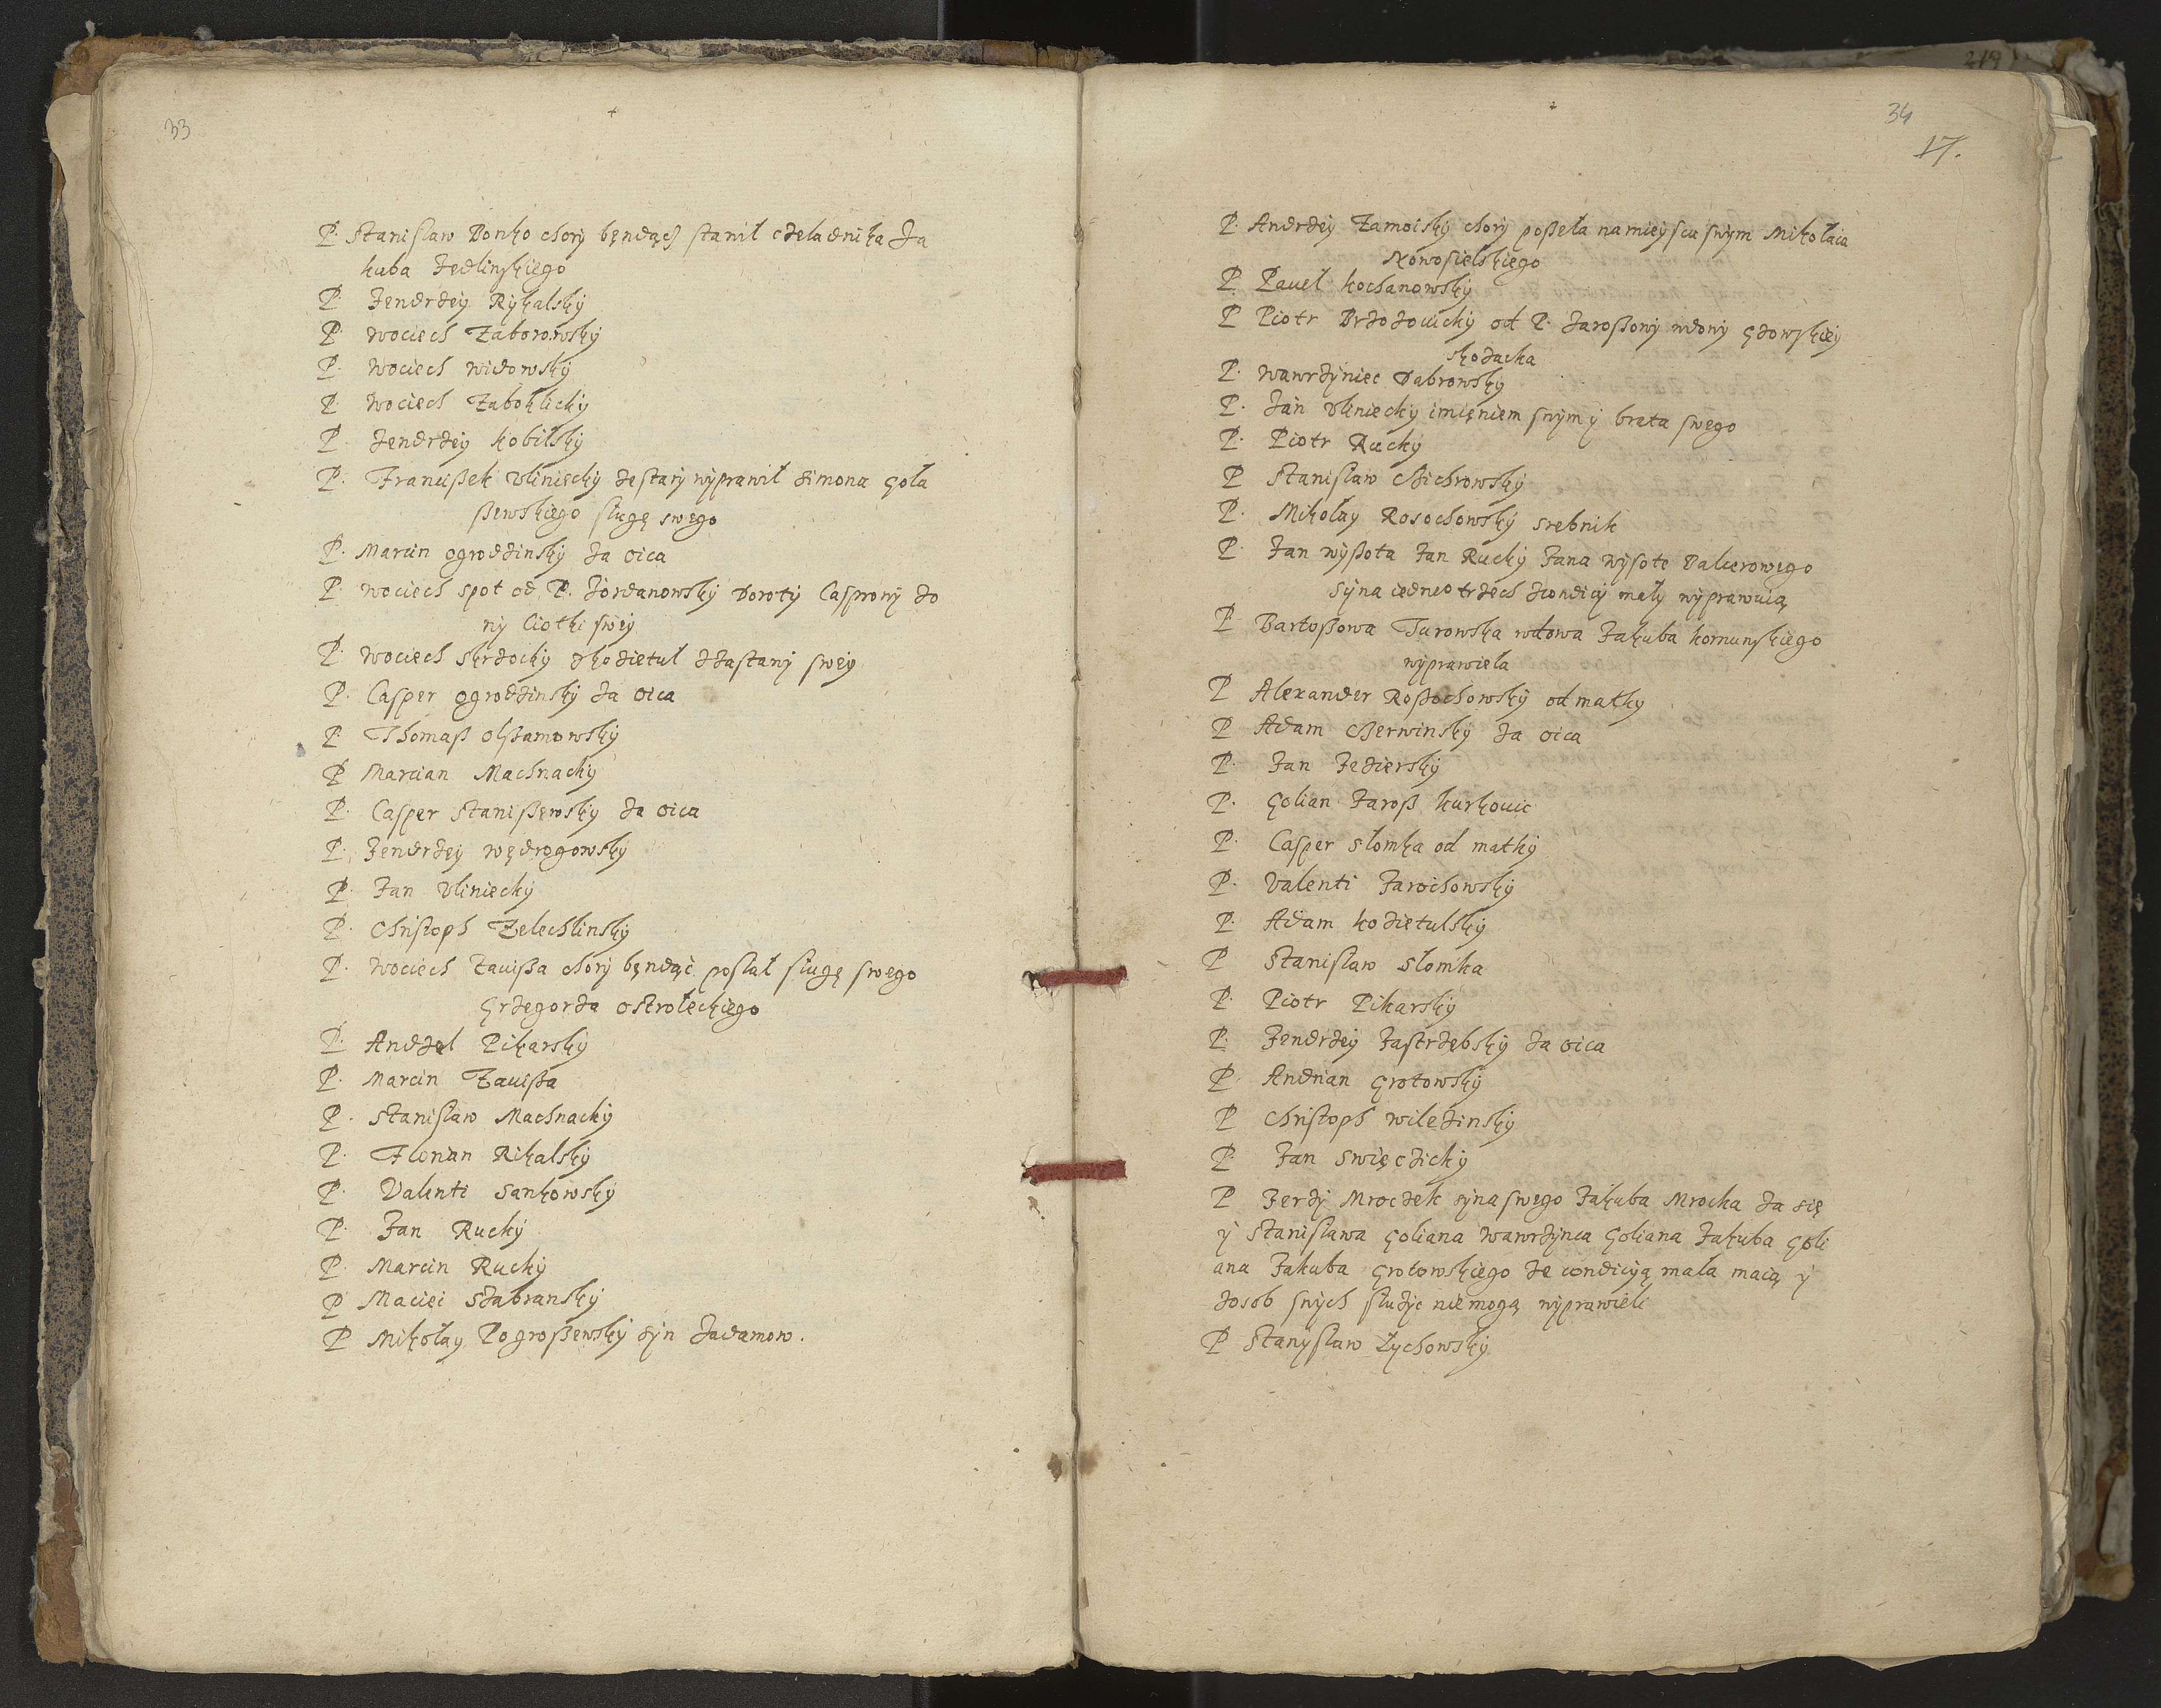 33
P. Stanislaw Bonko chorÿ bęndącz stanil czeladnika Ja
kuba Jedlinskiego
P. Jendrzeÿ Rÿkalskÿ
P. Wociech Zaborowskÿ
P. Wociech Widowskÿ
P. Wociech Zaboklickÿ
P. Jendrzeÿ Kobilskÿ
P. Franciβek Vlinieckÿ zestarÿ wÿprawil simona Gola
βewskiego slugę swego
P. Marcin Ogrodzinskÿ za oica
P. Wociech spot od P. Jordanowskÿ Dorotÿ Casprowÿ zo
nÿ Ciotki sweÿ
P. Wociech Skrzockÿ zkozietul zzastawÿ sweÿ
P. Casper Ogrodzinskÿ za oica
P. Thomaβ Olszamowskÿ
P. Marcian Machnackÿ
P. Casper Staniβewskÿ za oica
P. Jendrzeÿ Wędrogowskÿ
P. Jan Vlinieckÿ
P. Christoph Zelechlinskÿ
P. Wociech Zaviβa chorÿ bęndąc poslal slugę swego
Grzegorza Ostroleckiego
P. Andzel Pikarskÿ
P. Marcin Zaviβa
P. Stanislaw Machnackÿ
P. Florian Rikalskÿ
P. Valenti Sankowskÿ
P. Jan Ruckÿ
P. Marcin Ruckÿ
P. Maciei Szabranskÿ
P. Mikolaÿ Pogroβewskÿ sÿn Jadamow.
34
17.
P. Andrzeÿ Zamoiskÿ chorÿ poβela na mieÿscu swÿm Mikolaia
Nowosielskiego
P. Pavel Kochanowskÿ
P. Piotr Brzozovickÿ od P. Jaroβowÿ wdowÿ Gzowskieÿ
skozacka
P. Wawrzÿniec Dabrowskÿ
P. Jan Vlinieckÿ imięniem swÿm ÿ brata swego
P. Piotr Ruckÿ
P. Stanislaw Cβichrowskÿ
P. Mikolaÿ Rosochowskÿ srebnik
P. Jan Wÿβota Jan Ruckÿ Jana Wÿsote Balcerowego
sÿna iedne trzech zcondicÿ malÿ wÿprawuią
P. Bartoβowa Turowska wdowa Jakuba Kornunskiego
wÿprawiela
P. Alexander Roβochowskÿ od matkÿ
P. Adam Cβerwinskÿ za oica
P. Jan Jezierskÿ
P. Golian Jaroβ Kurkovic
P. Casper Slomka od matkÿ
P. Valenti Jarochowskÿ
P. Adam Kozietulskÿ
P. Stanislaw Slomka
P. Piotr Pikarskÿ
P. Jendrzeÿ Jastrzębskÿ za oica
P. Andrian Grotowskÿ
P. Christoph Wilezinskÿ
P. Jan Swięczickÿ
P. Jerzÿ Mroczek sÿna swego Jakuba Mrocka za się
ÿ Stanislawa Goliana Wawrzÿnca Goliana Jakuba Goli
ana Jakuba Grotowskiego ze condicÿą mala maią ÿ
zosob swÿch sluzÿc niemogą wÿprawieli
P. Stanÿslaw Zÿchowskÿ